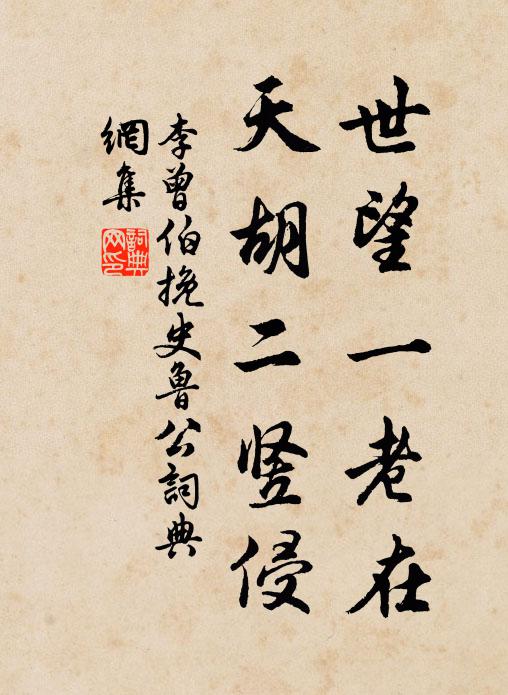 世望一老在
天胡二竖侵
李曾伯挽史鲁公詞典
網集
詞典网印